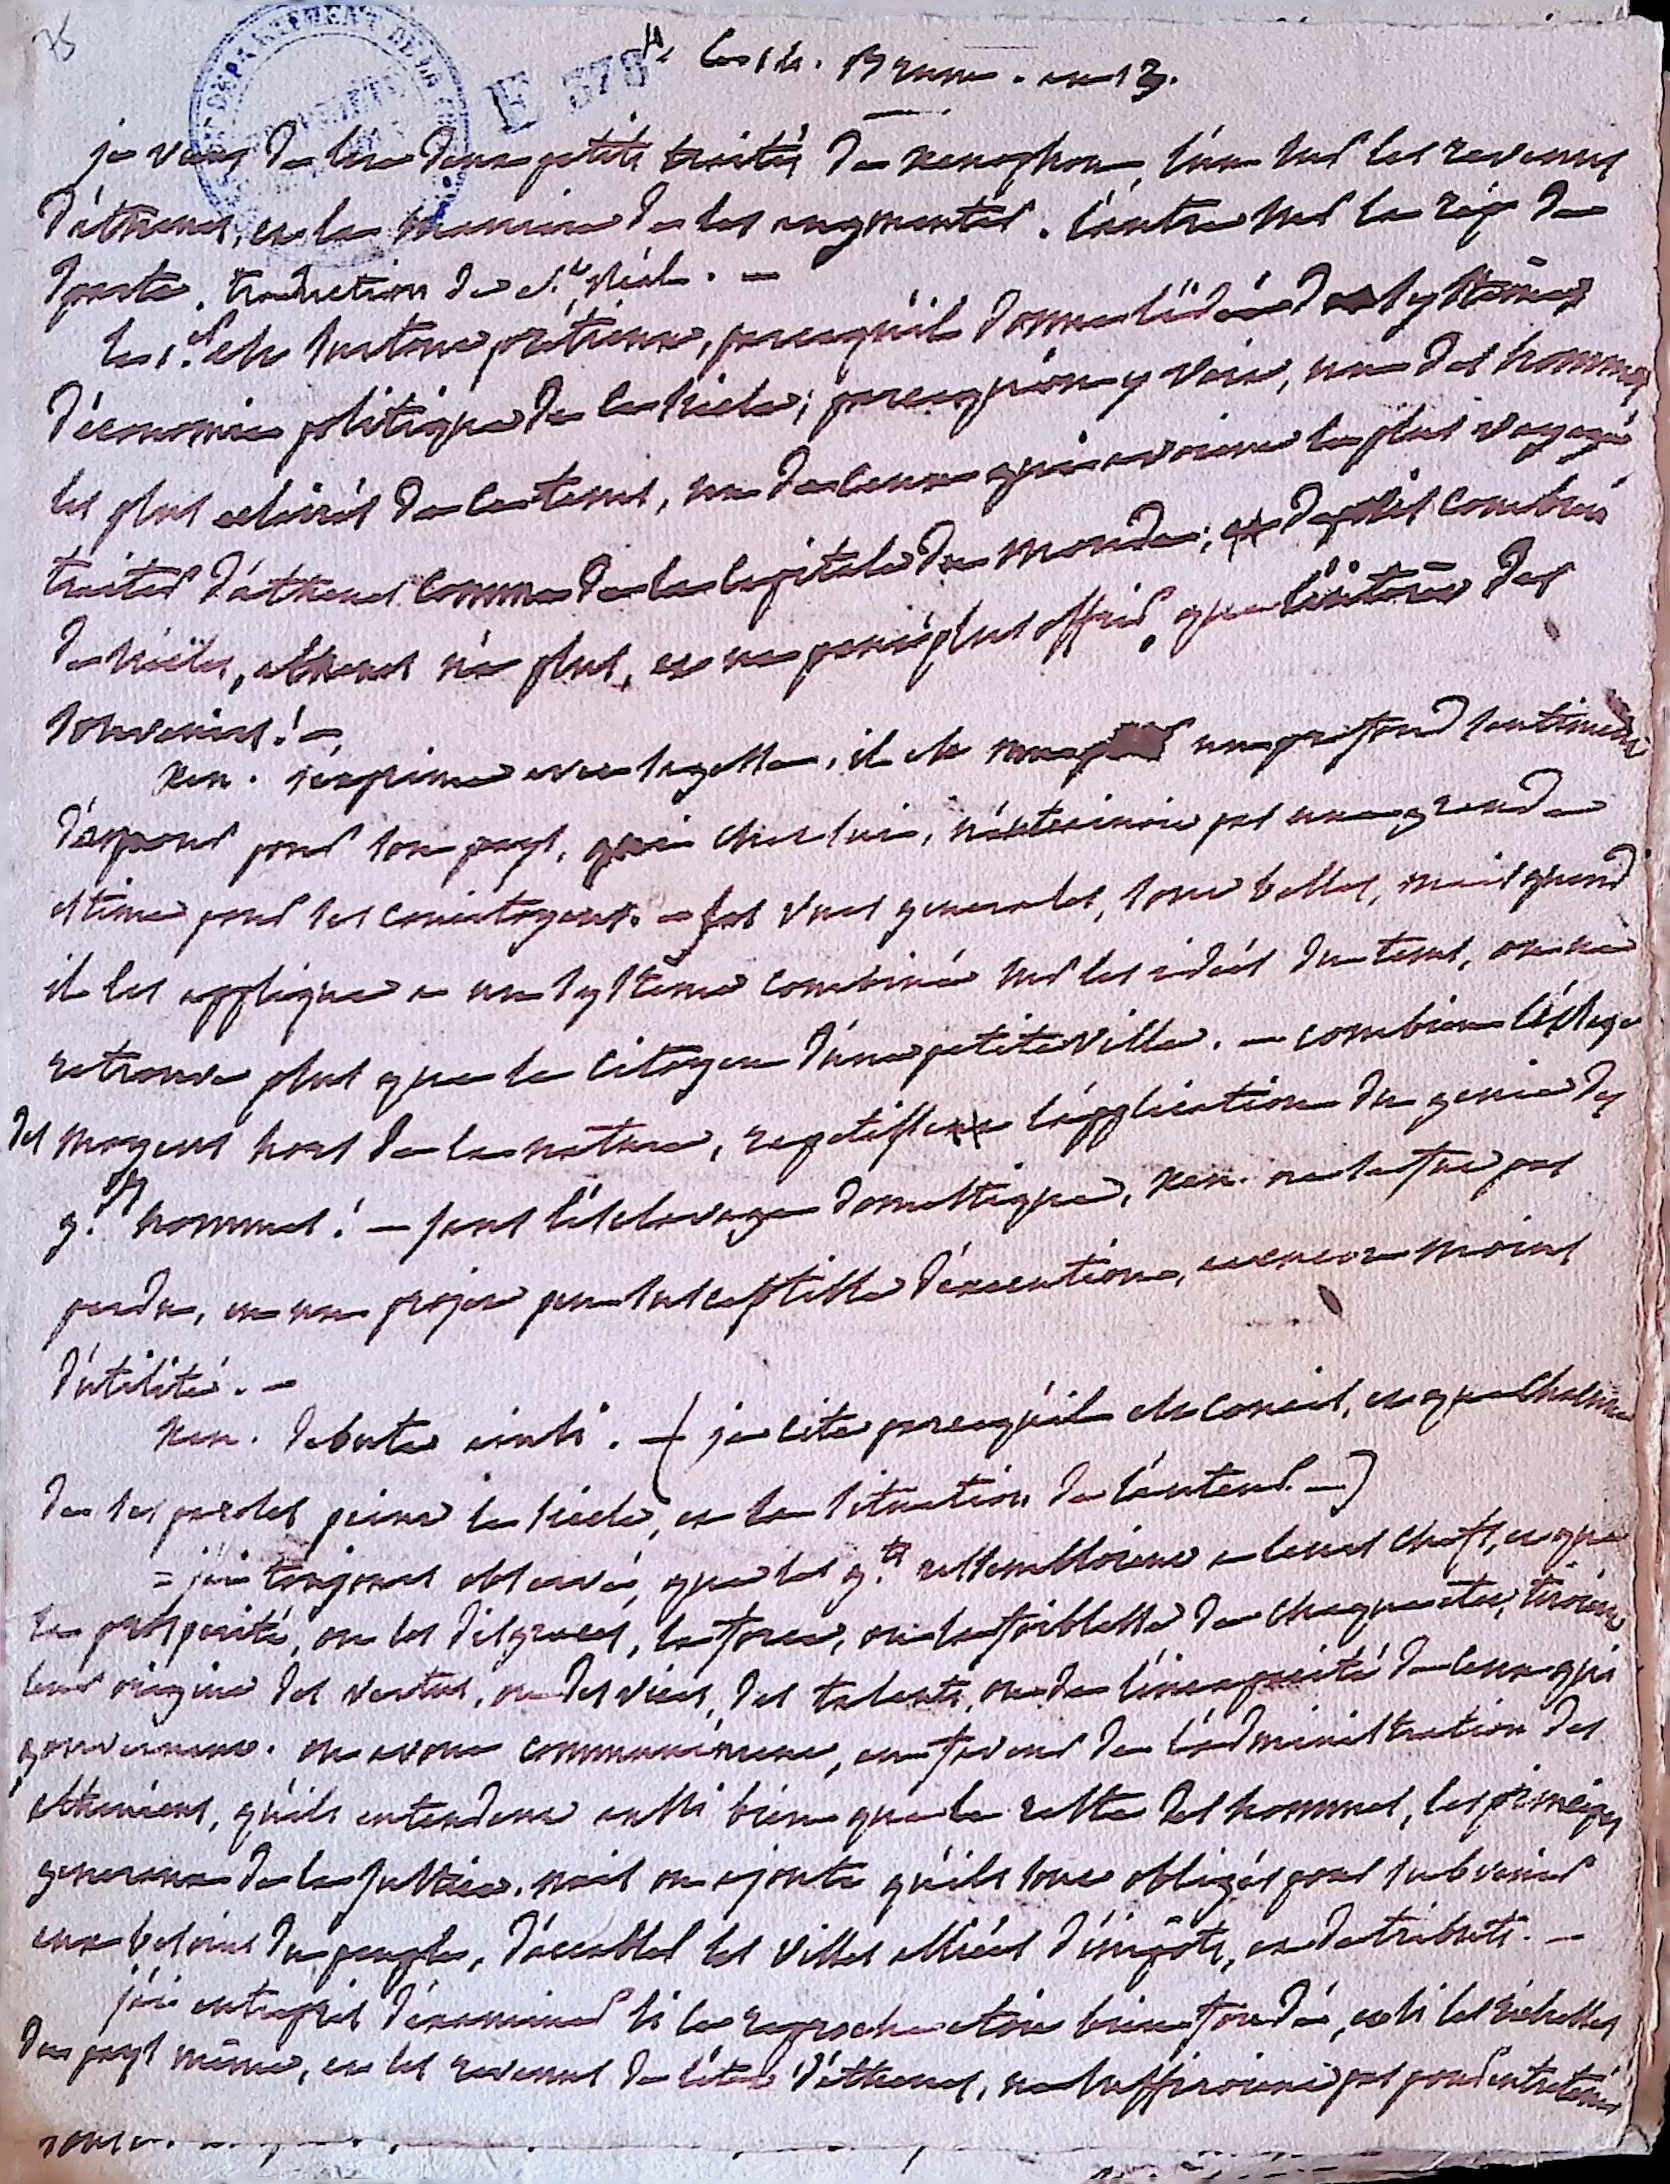 75
E 378
Ce 12. Brum. an 13.
je viens de lire deux petits traités de Xenophon, l'un sur les revenus
d'athenes, et la maniere de les augmenter. l'autre sur la rép. de
sparte. traduction de
le 1.er est surtout prétieux, parcequ'il donne l'idée du systême
d'économie politique de ce siecle ; parcequ'on y voit, un des hommes
les plus eclairés de ce tems, un de ceux qui avoient le plus voyagé
traiter d'athenes comme de la capitale du monde ; et depuis combien
de siecles, athenes n'a plus, et ne peut plus offrir, que l'intérêt des
souvenirs ! —
Xen. s'exprime avec sagesse, il est un profond sentiment
d'amour pour son pays, qui chez lui, n'entrainoit pas une grande
estime pour ses concitoyens. — ses vues generales, sont belles, mais quand
il les applique a un systême combiné sur les idées du tems, on ne
retrouve plus que le citoyen d'une petite ville. — combien l'usage
des moyens hors de la nature, rapetisse l'application du genie des
g.ds hommes ! — sans l'esclavage domestique, Xen. ne se fut pas
perdu, en un projet peu susceptible d'execution, et encore moins
d'utilité. —
Xen. debute ainsi. — ( je cite parcequ'il est concis, et que chacune
de ses paroles peint le siecle, et la situation de l'auteur. — )
= j'ai toujours observé, que les g.ts ressembloient a leurs chefs, et que
la prosperité, ou les disgraces, la force, ou la foiblesse de chaque etat, tiroient
leur origine des vertus, ou des vices, des talents, ou de l'incapacité de ceux qui
gouvernent. on avoue communément, en faveur de l'administration des
atheniens, qu'ils entendent aussi bien que le reste des hommes, les principes
generaux de la justice. mais on ajoute qu'ils sont obligés pour subvenir
aux besoins du peuple, d'accabler les villes alliées d'impôts, et de tributs. —
j'ai entrepris d'examiner si le reproche etoit bien fondé, et si les richesses
du pays même, et les revenus de l'etat d'athenes, ne suffiroient pas pour entretenir